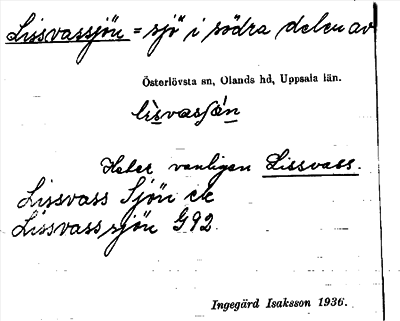 Lissvassjön = sjö i södra delen av
Österlövsta sn, Olands hd, Uppsala län.
lisvasʃön
Heter vanligen Lissvass.
Lissvass Sjön ek
Lissvasssjön G92
Ingegärd Isaksson 1936.